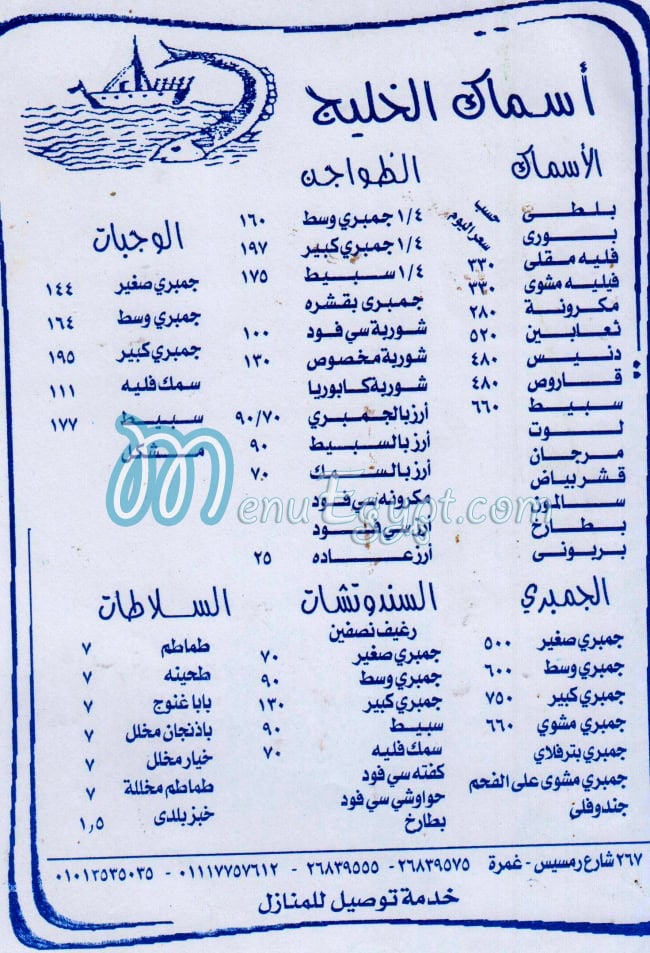 أسماك الخليج
الأسماك
بلطى
بورى
حسب سعر اليوم
فليه مقلى ٣٣٠
فيليه مشوى ٣٣٠
مكرونة ٢٨٠
ثعابين ٥٢٠
دنيس ٤٨٠
قاروص ٤٨٠
سبيط ٦٦٠
لوت
مرجان
قشر بياض
سالمون
بطارخ
بربونى
الظواجن
١/٤ جمبري وسط ١٦٠
١/٤ جمبري كبير ١٩٧
١/٤ سبيط ١٧٥
جمبرى بقشره
شوربة سي فود ١٠٠
شوربة مخصوص ١٣٠
شوربة كابوريا
أرز بالجمبري ٩٠/٧٠
أرز بالسبيط ٩٠
أرز بالسمك ٧٠
مكرونه سي فود
أرز سي فود
أرز عاده ٢٥
الوجبات
جمبري صغير ١٤٤
جمبري وسط ١٦٤
جمبري كبير ١٩٥
سمك فليه ١١١
سبيط ١٧٧
مشكل
MenuEgypt.com
الجمبري
جمبري صغير ٥٠٠
جمبري وسط ٦٠٠
جمبري كبير ٧٥٠
جمبري مشوي ٦٦٠
جمبري بترفلاي
جمبري مشوى على الفحم
جندوفلى
السندوتشات
رغيف نصفين
جمبري صغير ٧٠
جمبري وسط ٩٠
جمبري كبير ١٣٠
سبيط ٩٠
سمك فليه ٧٠
كفته سي فود
حواوشي سي فود
بطارخ
السلاطات
طماطم ٧
طحينه ٧
بابا غنوج ٧
باذنجان مخلل ٧
خيار مخلل ٧
طماطم مخللة ٧
خبز بلدى ١,٥
٢٦٧ شارع رمسيس - غمرة ٢٦٨٣٩٥٧٥ - ٢٦٨٣٩٥٥٥ - ٠١١١٧٧٥٧٦١٢ - ٠١٠١٣٥٣٥٠٣٥
خدمة توصيل للمنازل